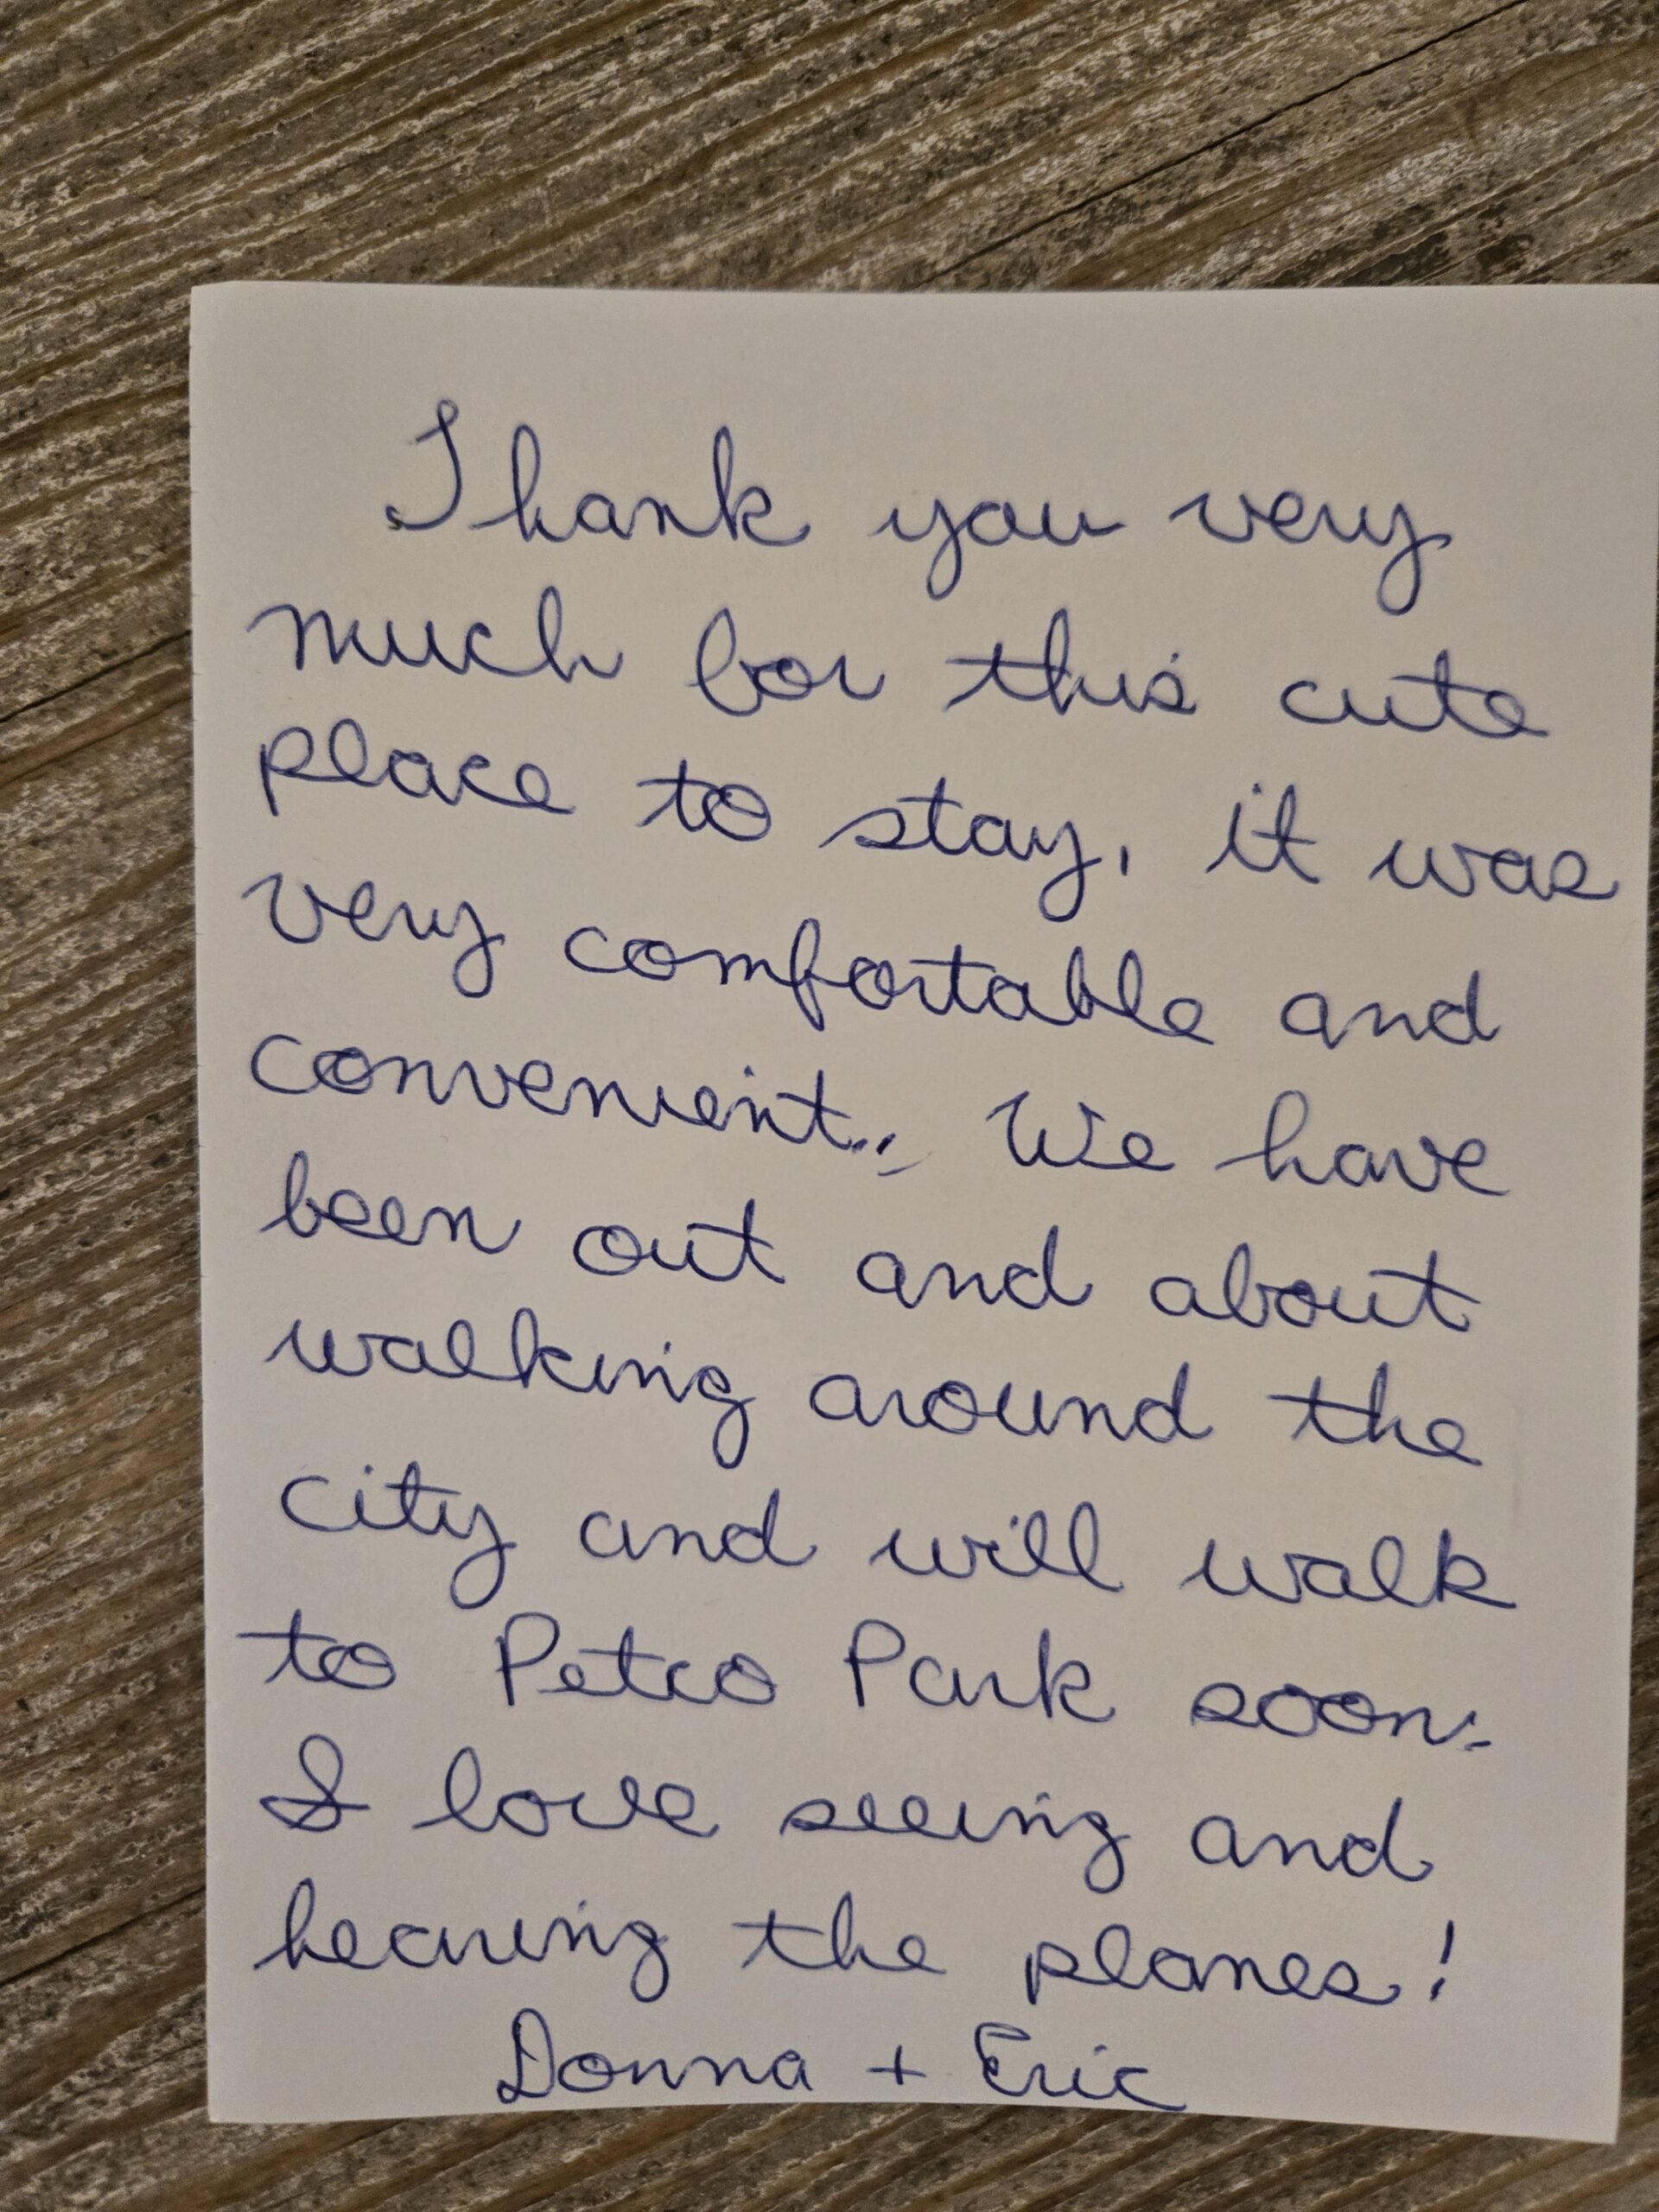 Thank you very
much for this cute
place to stay, it was
very comfortable and
convenient.. We have
been out and about
walking around the
city and will walk
to Petco Park soon.
I love seeing and
hearing the planes!
Donna + Eric